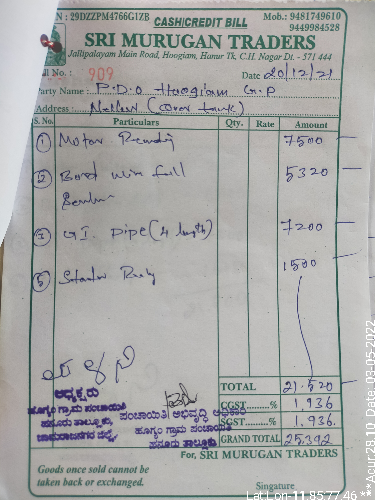 N : 29DZZPM4766G1ZB CASH/CREDIT BILL Mob.: 9481749610
9449984528
SRI MURUGAN TRADERS
Jallipalayam Main Road, Hoogiam, Hanur Tk, C.H. Nagar Dt. - 571 444
ll No. : 909 Date 20/12/21
arty Name : P.D.O Hoogiam G.P
Address : Nelluru (Over tank)
S. No. Particulars Qty. Rate Amount
1 Motor 7500
2 Bord full 5320
3 G.I. pipe (4 length) 7200
5 1500
TOTAL 21.520
CGST........% 1,936
SGST........% 1,936.
GRAND TOTAL 25.392
ಅಧ್ಯಕ್ಷರು
ಹೂಗ್ಯಂ ಗ್ರಾಮ ಪಂಚಾಯಿತಿ
ಹನೂರು ತಾಲ್ಲೂಕು,
ಚಾಮರಾಜನಗರ ಜಿಲ್ಲೆ.
ಪಂಚಾಯಿತಿ ಅಭಿವೃದ್ಧಿ ಅಧಿಕಾರಿ
ಹೂಗ್ಯಂ ಗ್ರಾಮ ಪಂಚಾಯಿತಿ
ಹನೂರು ತಾಲ್ಲೂಕು
For, SRI MURUGAN TRADERS
Goods once sold cannot be
taken back or exchanged.
Singature
Lat Lon-11.8577 46
Acur 28.10 Date-03-05-2022